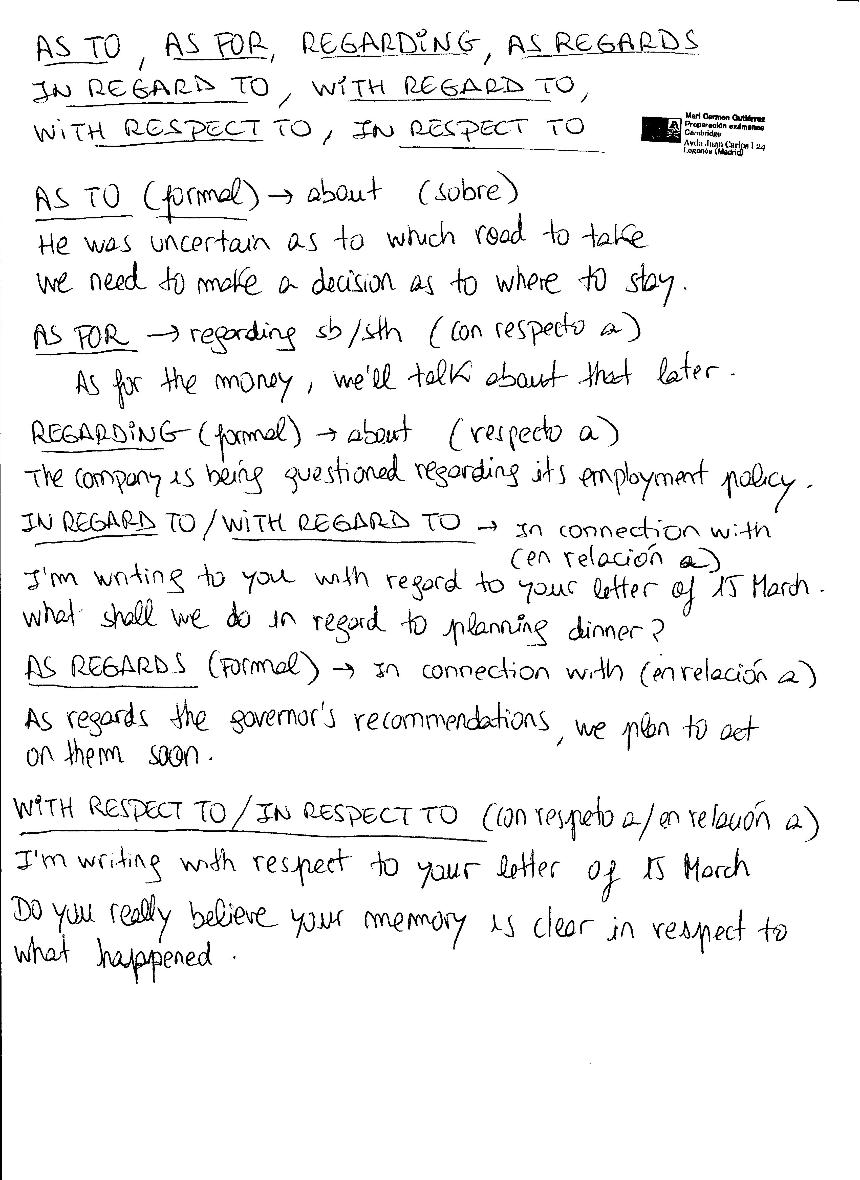 AS TO, AS FOR, REGARDING, AS REGARDS
IN REGARD TO, WITH REGARD TO,
WITH RESPECT TO, IN RESPECT TO
Mari Carmen Gutiérrez
Preparación exámenes
Cambridge
Avda Juan Carlos I 24
(Madrid)
AS TO (formal) → about (sobre)
He was uncertain as to which road to take
We need to make a decision as to where to stay.
AS FOR → regarding sb/sth (con respecto a)
As for the money, we'll talk about that later.
REGARDING (formal) → about (respecto a)
The company is being questioned regarding its employment policy.
IN REGARD TO / WITH REGARD TO → In connection with
(en relación a)
I'm writing to you with regard to your letter of 15 March.
What shall we do in regard to planning dinner?
AS REGARDS (Formal) → In connection with (en relación a)
As regards the governor's recommendations, we plan to act
on them soon.
WITH RESPECT TO / IN RESPECT TO (con respeto a / en relación a)
I'm writing with respect to your letter of 15 March
Do you really believe your memory is clear in respect to
what happened.